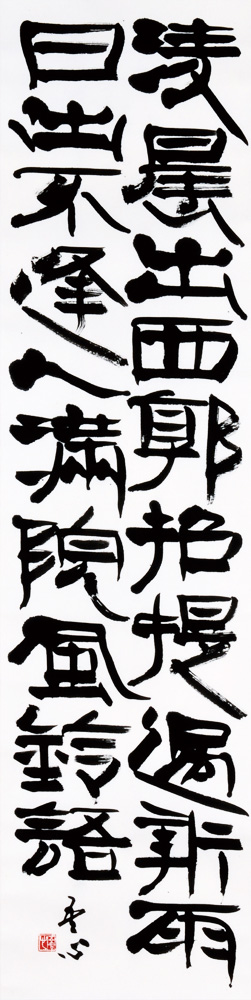 凌晨出西郭招提過新雨
日出不逢人滿院風鈴語